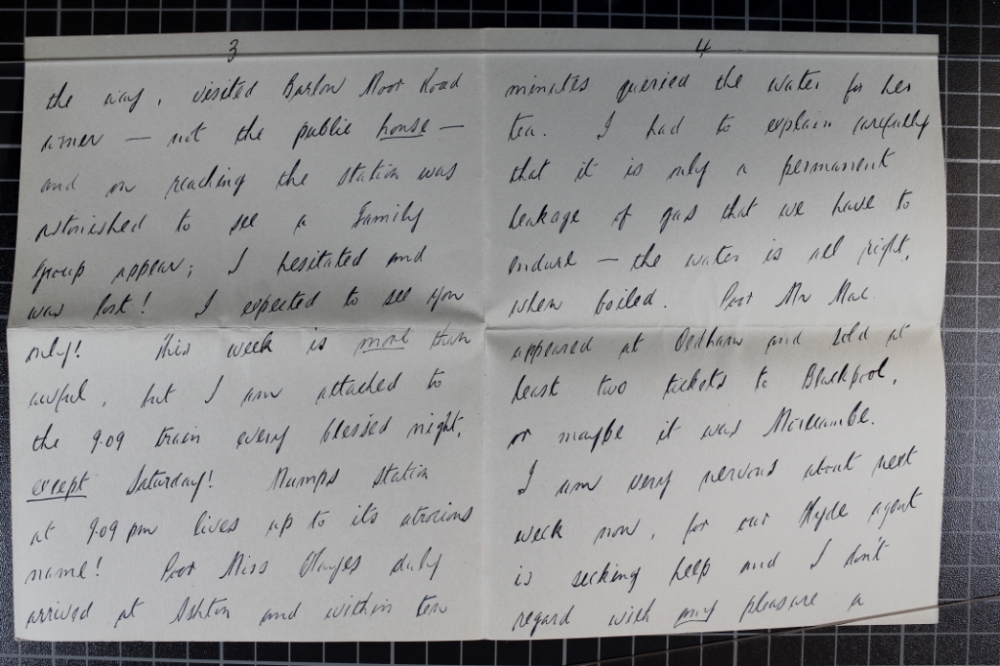 3
the way, visited Barlow Moor Road
corner — not the public house —
and on reaching the station was
astonished to see a Family
Group appear; I hesitated and
was lost! I expected to see you
only! This week is more than
awful, but I am attached to
the 9.09 train every blessed night,
except Saturday! Mumps station
at 9.09 pm lives up to its atrocious
name! Poor Miss Hayes duly
arrived at Ashton and within ten
4
minutes queried the water for her
tea. I had to explain carefully
that it is only a permanent
leakage of gas that we have to
endure — the water is all right,
when boiled. Poor Mr Mac
appeared at Oldham and sold at
least two tickets to Blackpool,
or maybe it was Morecambe.
I am very nervous about next
week now, for our Hyde agent
is seeking help and I don't
regard with any pleasure a